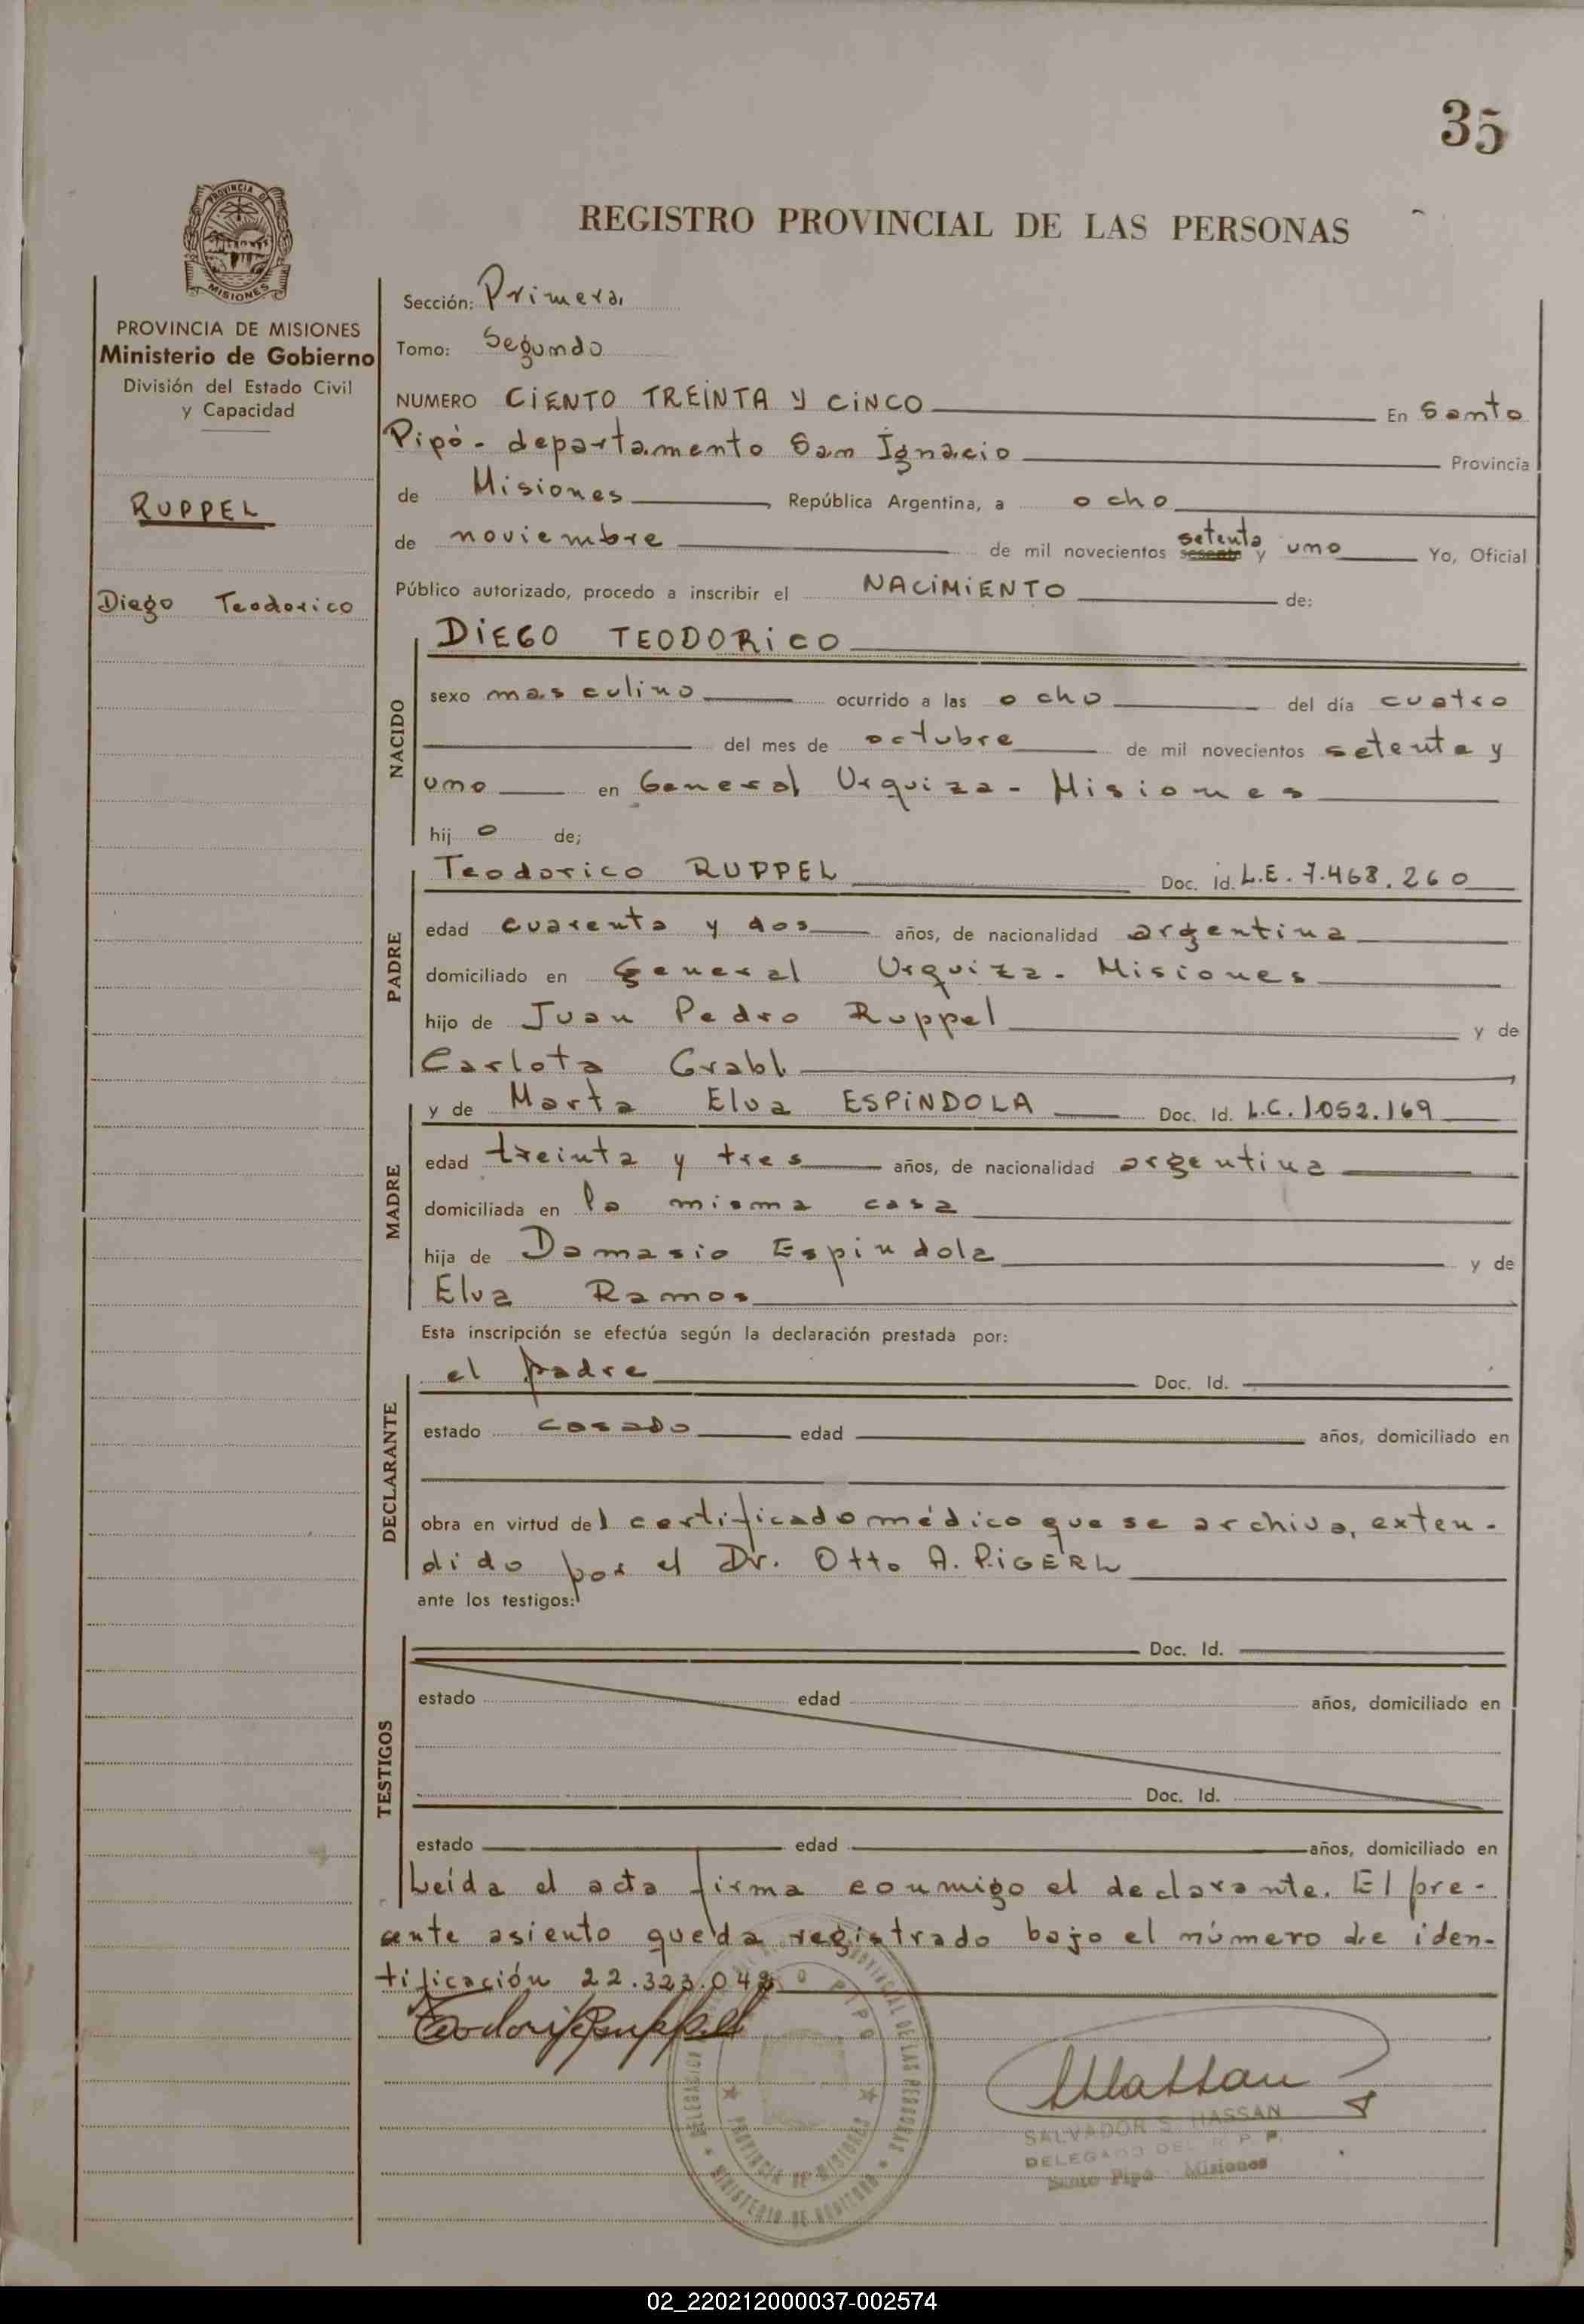 35
PROVINCIA DE
MISIONES
REGISTRO PROVINCIAL DE LAS PERSONAS
PROVINCIA DE MISIONES
Ministerio de Gobierno
División del Estado Civil
y Capacidad
RUPPEL
Diego Teodorico
Sección: Primera
Tomo: Segundo
NUMERO CIENTO TREINTA Y CINCO En Santo
Pipó - departamento San Ignacio Provincia
de Misiones, República Argentina, a ocho
de noviembre de mil novecientos setenta y uno Yo, Oficial
Público autorizado, procedo a inscribir el NACIMIENTO de:
NACIDO
DIEGO TEODORICO
sexo masculino ocurrido a las ocho del día cuatro
del mes de octubre de mil novecientos setenta y
uno en General Urquiza - Misiones
hij o de;
PADRE
Teodorico RUPPEL Doc. id. L.E. 7.468.260
edad cuarenta y dos años, de nacionalidad argentina
domiciliado en General Urquiza - Misiones
hijo de Juan Pedro Ruppel y de
Carlota Grabl
MADRE
y de Marta Elva ESPINDOLA Doc. Id. L.C. 1.052.169
edad treinta y tres años, de nacionalidad argentina
domiciliada en la misma casa
hija de Damasio Espindola y de
Elva Ramos
Esta inscripción se efectúa según la declaración prestada por:
DECLARANTE
el padre Doc. Id.
estado casado edad años, domiciliado en
obra en virtud del certificado médico que se archiva, exten-
dido por el Dr. Otto A. PIGERL
ante los testigos:
TESTIGOS
Doc. Id.
estado edad años, domiciliado en
Doc. Id.
estado edad años, domiciliado en
Leída el acta firma conmigo el declarante. El pre-
ente asiento queda registrado bajo el número de iden-
tificación 22.323.048
Teodorico Ruppel
SHassan
SALVADOR S. HASSAN
DELEGADO DEL R. P. P.
Santo Pipó - Misiones
PROVINCIAL DE LAS PERSONAS
PROVINCIA DE MISIONES
MINISTERIO DE GOBIERNO
02_220212000037-002574